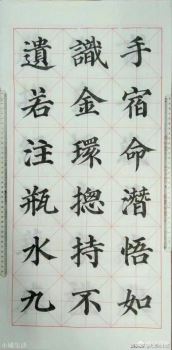 手宿命潛悟如
識金環揔持不
遺若注瓶水九